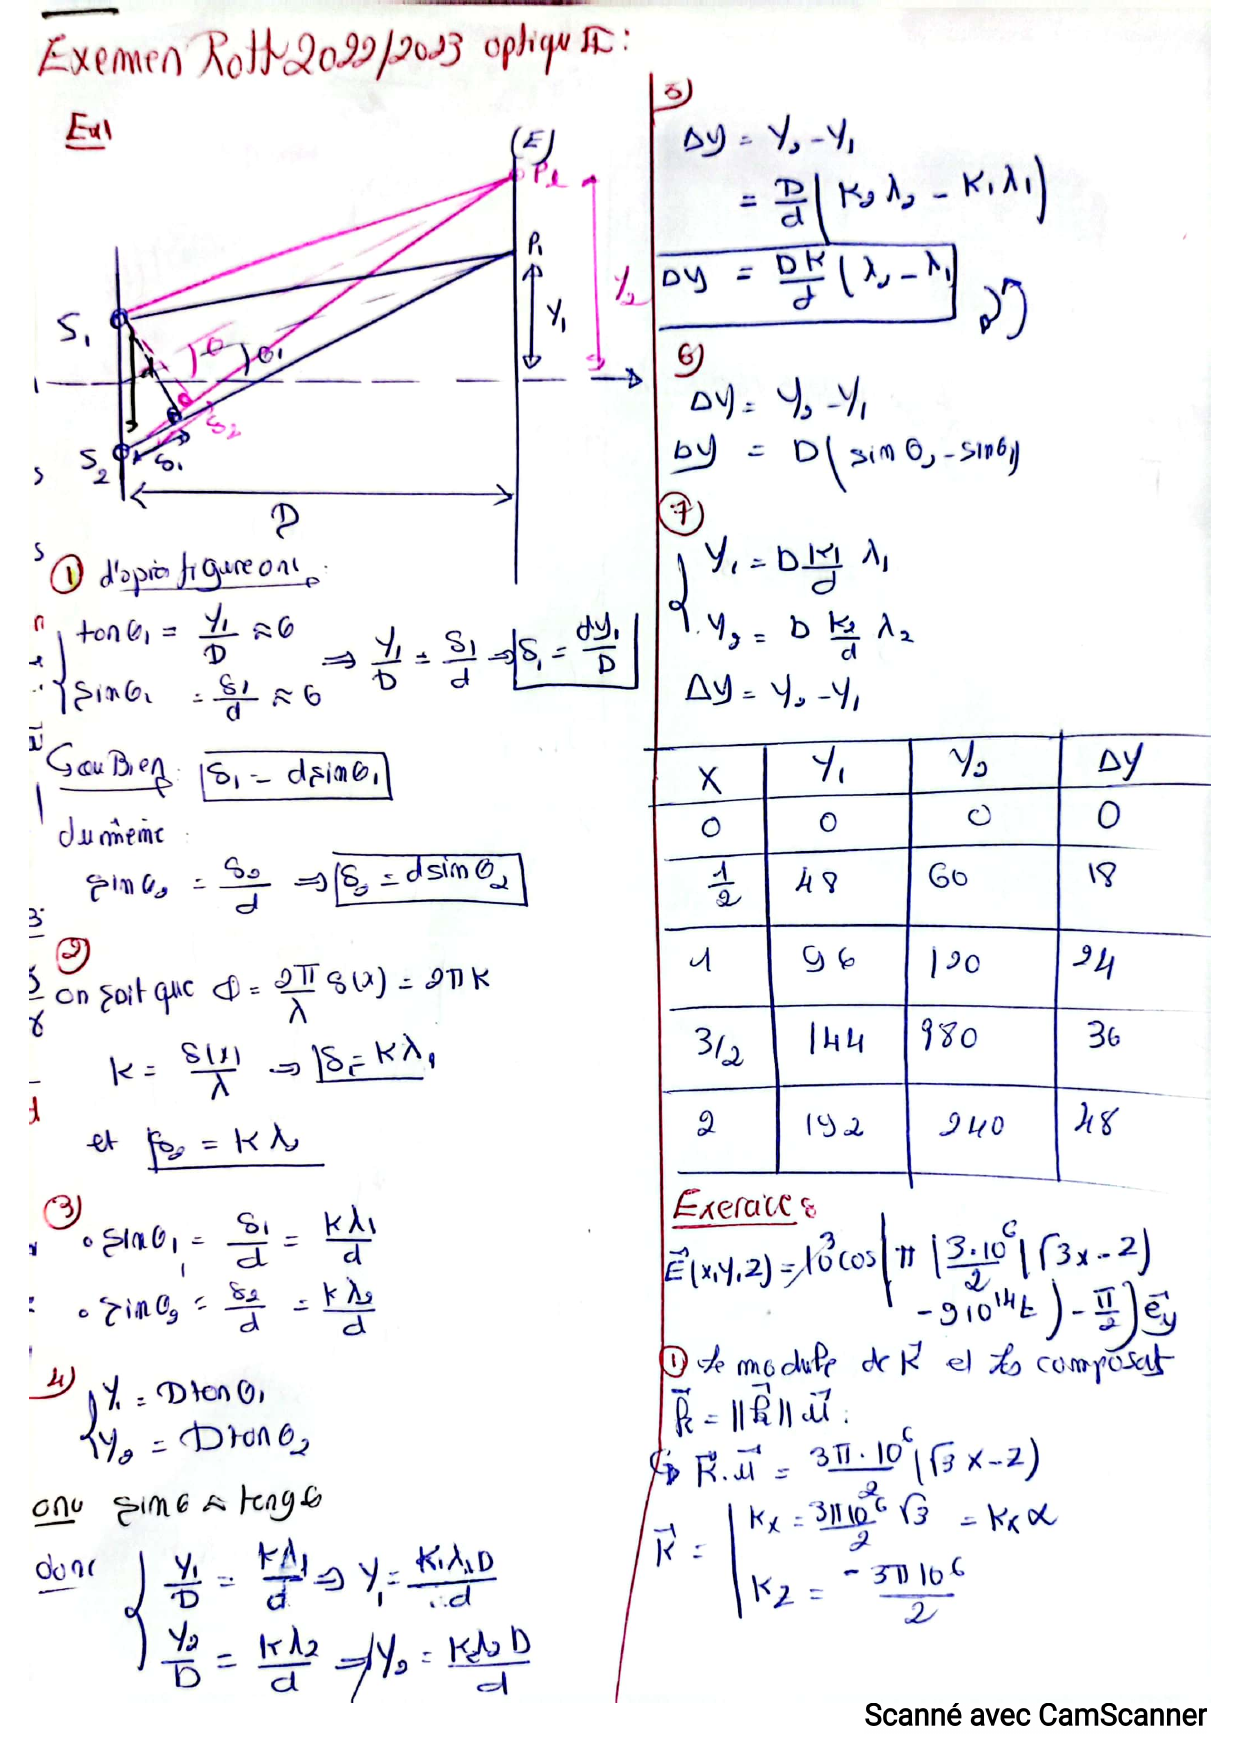 Examen Ratt 2022/2023 optique II:
Ex1
(E)
P2
P1
Y2
Y1
S1
θ
θ1
δ2
S2
δ1
D
① d'après figure on a
tanθ1 = Y1/D ≈ θ
sinθ1 = δ1/d ≈ θ
⇒ Y1/D = δ1/d ⇒ δ1 = dy1/D
Ou Bien δ1 = d sinθ1
du même :
sinθ2 = δ2/d ⇒ δ2 = d sinθ2
②
on sait que Φ = 2π/λ δ(x) = 2πK
K = δ(x)/λ ⇒ δ1 = Kλ1
et δ2 = Kλ2
3)
• sinθ1 = δ1/d = Kλ1/d
• sinθ2 = δ2/d = Kλ2/d
4) Y1 = D tanθ1
Y2 = D tanθ2
on a sinθ ≈ tangθ
donc Y1/D = Kλ1/d ⇒ Y1 = K1λ1D/d
Y2/D = Kλ2/d ⇒ Y2 = K2λ2D/d
5)
Δy = Y2 - Y1
= D/d (K2λ2 - K1λ1)
Δy = DK/d (λ2 - λ1)
6)
Δy = Y2 - Y1
Δy = D(sinθ2 - sinθ1)
⑦
Y1 = D K1/d λ1
Y2 = D K2/d λ2
Δy = Y2 - Y1
X Y1 Y2 Δy
0 0 0 0
1/2 48 60 18
1 96 120 24
3/2 144 980 36
2 192 240 48
Exercice 2
E⃗(x,y,z) = 10³cos(π(3.10⁶/2(√3x - z)
- 9 10¹⁴t) - π/2) e⃗y
① le module de K⃗ et les composat
k⃗ = ||k⃗|| u⃗ :
K⃗.u⃗ = 3π.10⁶/2 (√3x - z)
K⃗ = | Kx = 3π10⁶/2 √3 = Kxα
Kz = -3π10⁶/2
Scanné avec CamScanner